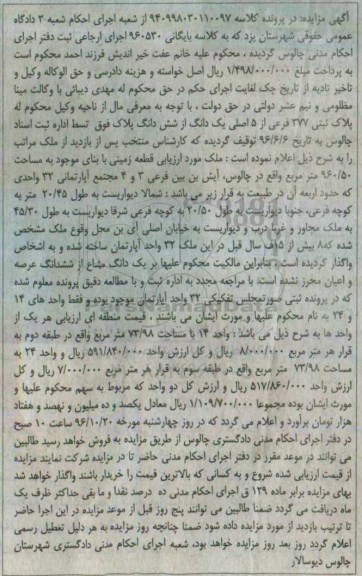 آگهی مزایده: در پرونده کلاسه ۹۴۰۹۹۸۰۳۰۱۱۰۰۹۷ از شعبه اجرای احکام شعبه ۳ دادگاه
عمومی حقوقی شهرستان یزد که به کلاسه بایگانی ۹۶۰۵۳۰ اجرای ارجاعی ثبت دفتر اجرای
احکام مدنی چالوس گردیده ، محکوم علیه خانم عفت خیر اندیش فرزند احمد محکوم است
به پرداخت مبلغ ۱/۴۹۸/۰۰۰/۰۰۰ ریال اصل خواسته و هزینه دادرسی و حق الوکاله وکیل و
تاخیر تادیه از تاریخ چک لغایت اجرای حکم در حق محکوم له مهدی دیبائی با وکالت مینا
مظلومی و نیم عشر دولتی در حق دولت ، با توجه به معرفی مال از ناحیه وکیل محکوم له
پلاک ثبتی ۳۷۷ فرعی از ۵ اصلی یک دانگ از شش دانگ پلاک فوق توسط اداره ثبت اسناد
چالوس به تاریخ ۹۶/۶/۶ توقیف گردیده که کارشناس منتخب پس از بازدید از ملک مراتب
را به شرح ذیل اعلام نموده است : ملک مورد ارزیابی قطعه زمینی با بنای موجود به مساحت
۹۶۰/۵۰ متر مربع واقع در چالوس، آیش بن بین فرعی ۳ و ۴ مجتمع آپارتمانی ۳۲ واحدی
که حدود اربعه آن در طبیعت به قرار زیر می باشد : شمالا دیواریست به طول ۲۰/۴۵ متر به
کوچه فرعی، جنوبا دیواریست به طول ۲۰/۵۰ به کوچه فرعی شرقا دیواریست به طول ۴۵/۳۰
به ملک مجاور و غربا درب و دیواریست به خیابان اصلی آی بن محل وقوع ملک مشخص
شده که بیش از سال قبل در این ملک ۳۲ واحد آپارتمان ساخته شده و به اشخاص
واگذار گردیده است ، بنابراین مالکیت محکوم علیها بر یک دانگ مشاع از ششدانگ عرصه
و اعیان محرز نشده است. با مراجعه مجدد به اداره ثبت و با مطالعه دقیق پرونده معلوم شده
که در پرونده ثبتی صورتمجلس تفکیکی ۳۲ واحد آپارتمان موجود بوده و فقط واحد های ۱۴
و ۲۴ به نام محکوم علیها و مورث ایشان می باشد ، قیمت منطقه ای ارزیابی هر یک از
واحد ها به شرح ذیل می باشد : واحد ۱۴ با مساحت ۷۳/۹۸ متر مربع واقع در طبقه دوم به
قرار هر متر مربع ۸/۰۰۰/۰۰۰ ریال و کل ارزش واحد ۵۹۱/۸۴۰/۰۰۰ ریال و واحد ۲۴ به
مساحت ۷۳/۹۸ متر مربع واقع در طبقه سوم به قرار هر متر مربع ۷/۰۰۰/۰۰۰ ریال و کل
ارزش واحد ۵۱۷/۸۶۰/۰۰۰ ریال و ارزش کل دو واحد که مربوط به سهم محکوم علیها و
مورث ایشان بوده مجموعا ۱/۱۰۹/۷۰۰/۰۰۰ ریال معادل یکصد و ده میلیون و نهصد و هفتاد
هزار تومان برآورد و اعلام می گردد که در روز چهارشنبه مورخه ۹۶/۱۰/۲۰ ساعت ۱۰ صبح
در دفتر اجرای احکام مدنی دادگستری چالوس از طریق مزایده به فروش خواهد رسید طالبین
می توانند در موعد مقرر در دفتر اجرای احکام مدنی حاضر تا در مزایده شرکت نمایند مزایده
از قیمت ارزیابی شده شروع و به کسانی که بالاترین قیمت را خریدار باشند واگذار خواهد شد
بهای مزایده برابر ماده ۱۲۹ ق اجرای احکام مدنی ده درصد نقدا و ما بقی حداکثر ظرف یک
ماه دریافت می گردد ضمنا طالبین می توانند پنج روز قبل از موعد مزایده در این اجرا حاضر
تا ترتیب بازدید از مورد مزایده داده شود ضمنا چنانچه روز مزایده به هر دلیل تعطیل رسمی
اعلام گردد روز بعد روز مزایده خواهد بود، شعبه اجرای احکام مدنی دادگستری شهرستان
چالوس دیوسالار